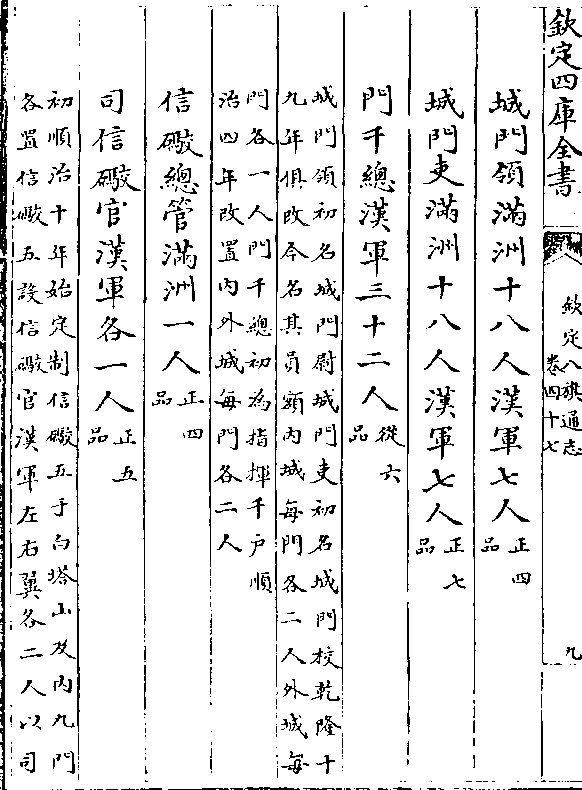 欽定四庫全書
欽定八旗通志
卷四十七
九
城門領滿洲十八人漢軍七人正四
品
城門吏滿洲十八人漢軍七人正七
品
門千總漢軍三十二人從六
品
城門領初名城門尉城門吏初名城門校乾隆十
九年俱改今名其員額内城每門各二人外城每
門各一人門千總初為指揮千戶順
治四年改置内外城每門各二人
信礮總管滿洲一人正四
品
司信礮官漢軍各一人正五
品
初順治十年始定制信礮五于白塔山及内九門
各置信礮五設信礮官漢軍左右翼各二人以司